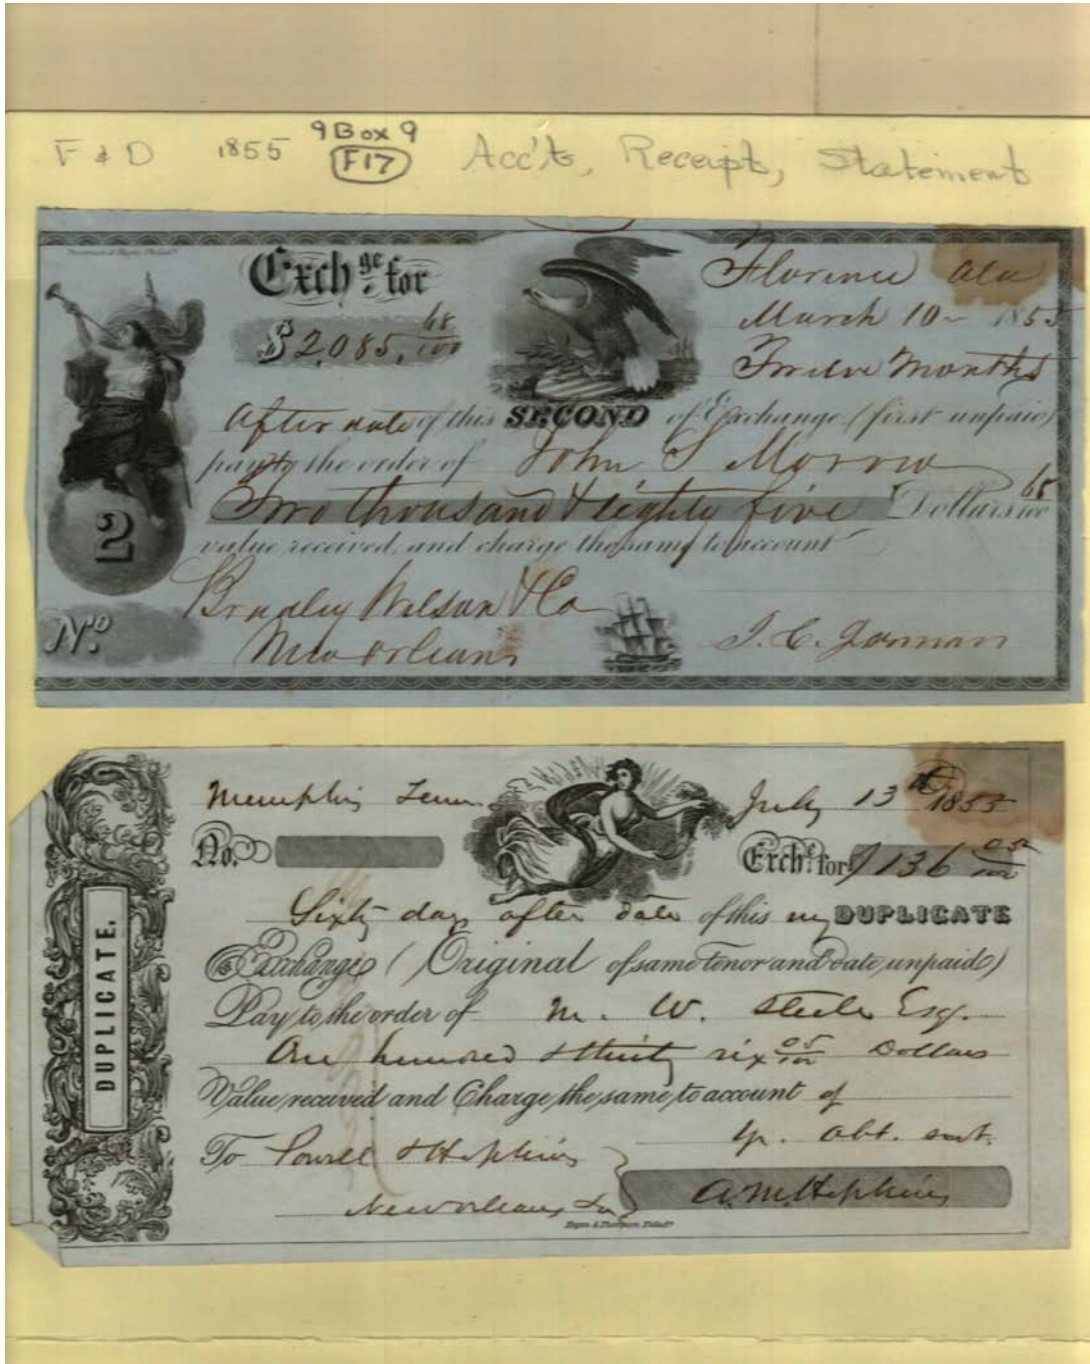 F & D 1855 9 Box 9 Acc'ts, Receipt, Statement
F17
Exchge. for
$2,085, 68/100
Florence Ala
March 10 1855
Twelve Months
After date of this SECOND of Exchange (first unpaid)
pay to the order of John S Morrow
Two thousand & eighty five Dollars 68/100
value received, and charge the same to account
2
No.
Bradley Wilson & Co
New Orleans
DUPLICATE.
Memphis Tenn. July 13th 1855
No. Exche. for $136 05/100
Sixty days after date of this my DUPLICATE
Exchange (Original of same tenor and date unpaid)
Pay to the order of M. W. Steele Esq.
One hundred & thirty six 05/100 Dollars
Value received and Charge the same to account of
Yr. obt. svt.
To Powell & Hopkins
New Orleans La
A. M. Hopkins